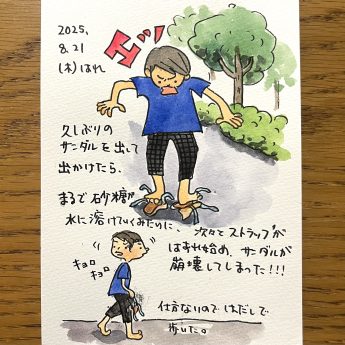 2025,
8.21
(木)はれ
久しぶりの
サンダルを出して
出かけたら、
まるで砂糖が
水に溶けていくみたいに、次々とストラップが
はずれ始め、サンダルが
崩壊してしまった!!!
キョロ
キョロ
仕方ないのではだしで
歩いた。